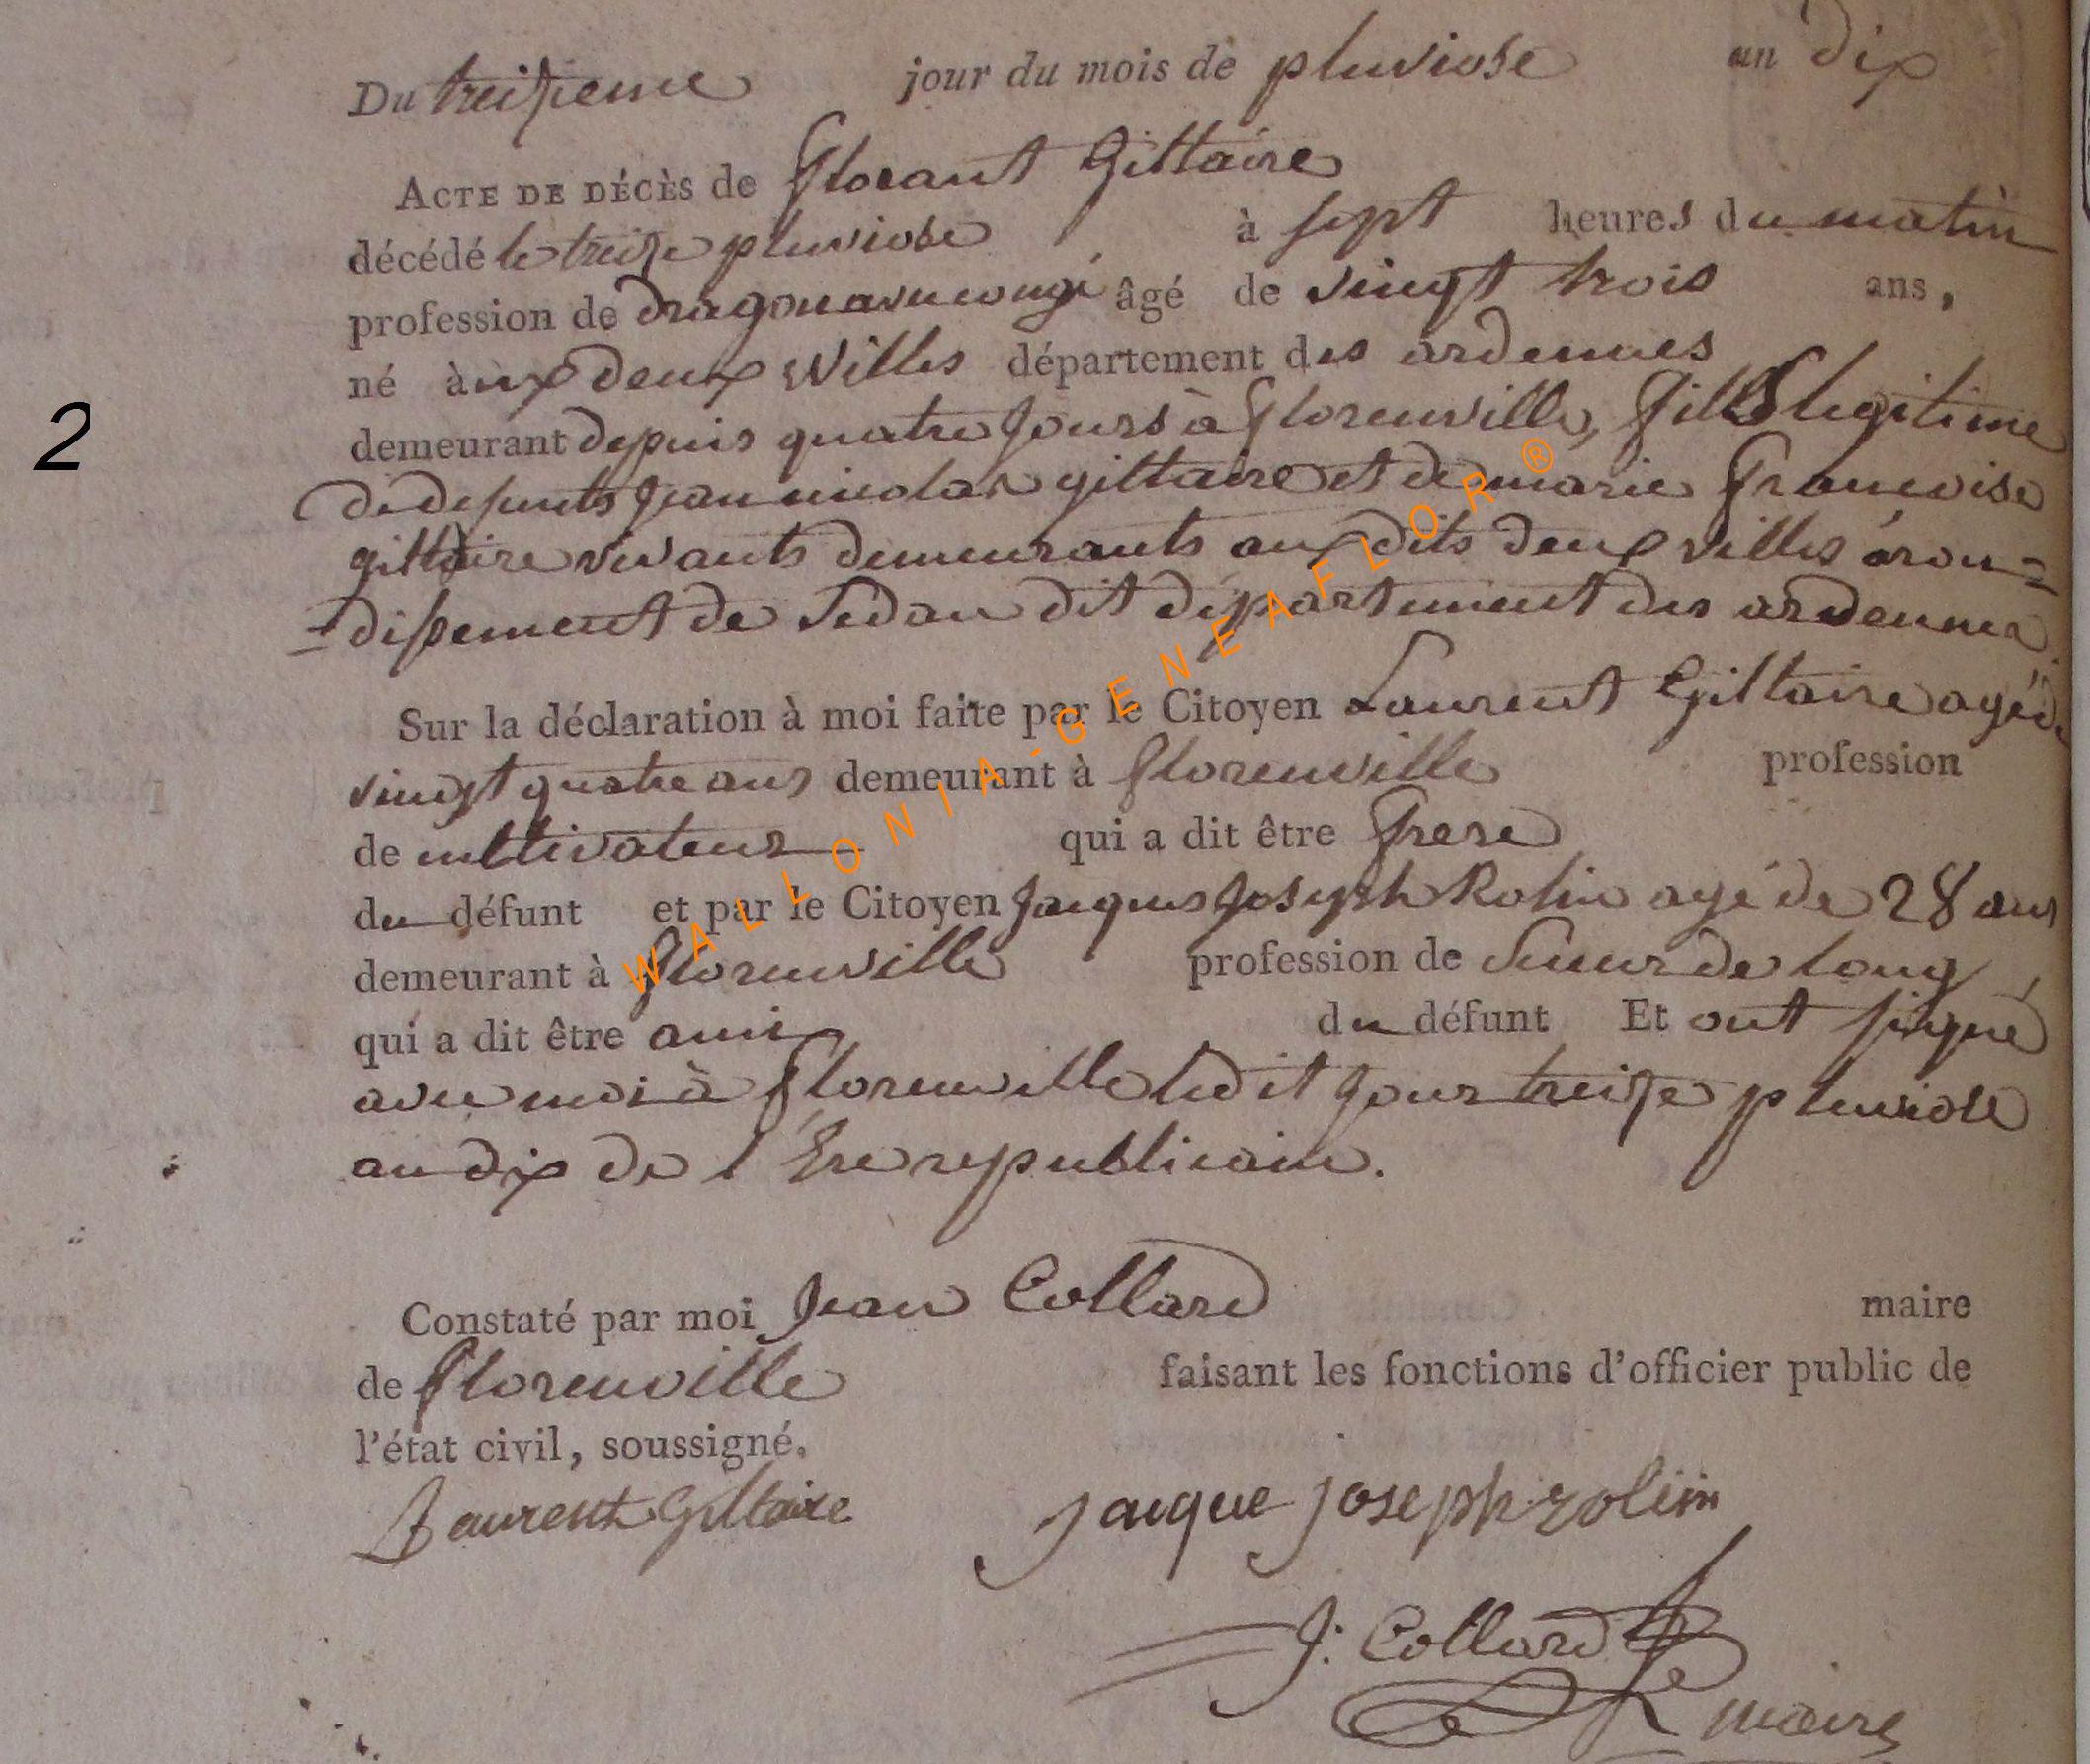 Du treizieme jour du mois de pluviose an dix
ACTE DE DÉCÈS de florant Giltaire
décédé le treize pluviose à sept heures du matin
profession de dragon avec congé âgé de vingt trois ans,
né àux deux Villes département des ardennes
demeurant depuis quatre jours à florenville, fils legitime
2
de defunts jean nicolas giltaire et de marie francoise
giltaire vivants demeurants aux dits deux villes aron=
=dissement de Sedan dit département des ardennes
Sur la déclaration à moi faite par le Citoyen Laurent Giltaire agé de
vingt quatre ans demeurant à florenville profession
de cultivateur qui a dit être frere
du défunt et par le Citoyen jacques joseph Rolin agé de 28 ans
demeurant à florenville profession de Scieur de long,
qui a dit être ami du défunt Et ont signé
avec moi à florenville ledit jour treize pluviose
an dix de l'Ere republicaine.
Constaté par moi jean Collard maire
de florenville faisant les fonctions d'officier public de
l'état civil, soussigné.
Laurent Giltaire jacque joseph rolin
J: Collard
maire
WALLONIA-GENEAFLOR ®